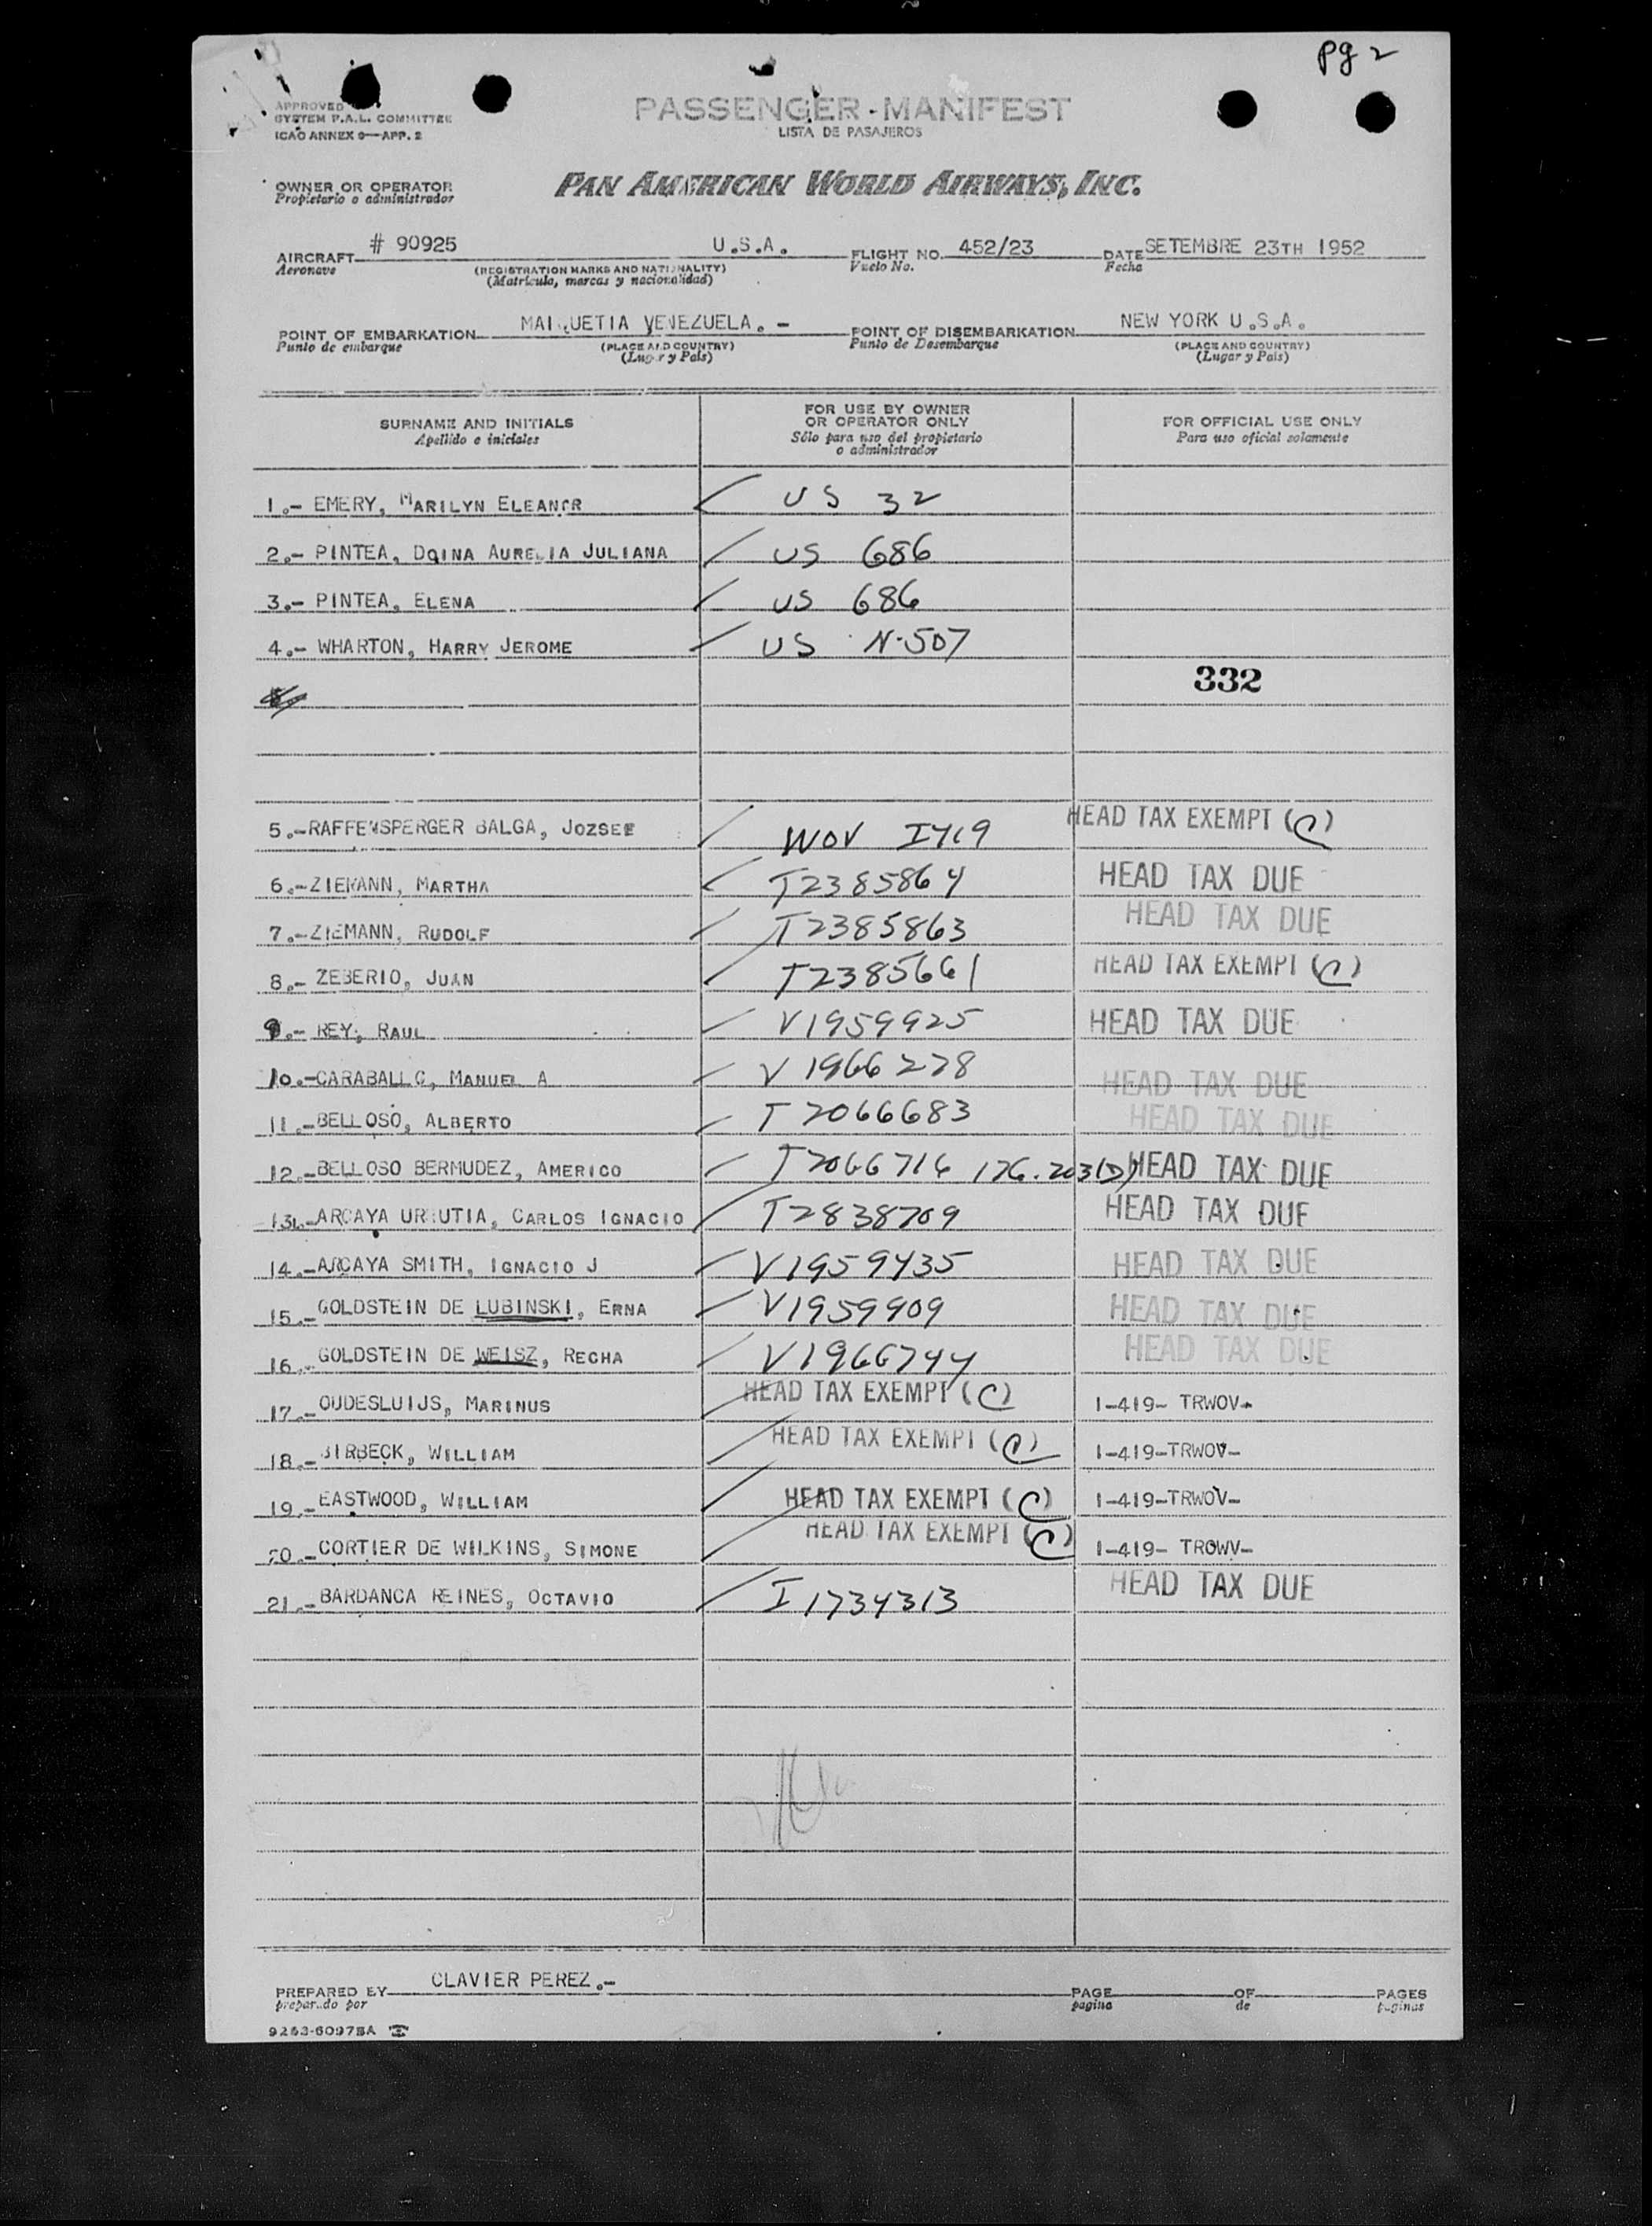 pg 2
APPROVED
SYSTEM P.A.L. COMMITTEE
ICAO ANNEX 9—APP. 2
PASSENGER-MANIFEST
LISTA DE PASAJEROS
OWNER OR OPERATOR
Propietario o administrador
PAN AMERICAN WORLD AIRWAYS, INC.
AIRCRAFT # 90925 U.S.A. FLIGHT NO. 452/23 DATE SETEMBRE 23TH 1952
Aeronave (REGISTRATION MARKS AND NATIONALITY) Vuelo No. Fecha
(Matrícula, marcas y nacionalidad)
POINT OF EMBARKATION MAIQUETIA VENEZUELA.- POINT OF DISEMBARKATION NEW YORK U.S.A.
Punto de embarque (PLACE AND COUNTRY) Punto de Desembarque (PLACE AND COUNTRY)
(Lugar y País) (Lugar y País)
SURNAME AND INITIALS FOR USE BY OWNER OR OPERATOR ONLY FOR OFFICIAL USE ONLY
Apellido e iniciales Sólo para uso del propietario o administrador Para uso oficial solamente
1.- EMERY, MARILYN ELEANOR US 32
2.- PINTEA, DOINA AURELIA JULIANA US 686
3.- PINTEA, ELENA US 686
4.- WHARTON, HARRY JEROME US N-507
332
5.-RAFFENSPERGER BALGA, JOZSEF WOV I419 HEAD TAX EXEMPT (C)
6.-ZIEMANN, MARTHA T2385864 HEAD TAX DUE
7.-ZIEMANN, RUDOLF T2385863 HEAD TAX DUE
8.- ZEBERIO, JUAN T2385661 HEAD TAX EXEMPT (C)
9.- REY, RAUL V1959925 HEAD TAX DUE
10.-CARABALLO, MANUEL A V1966278 HEAD TAX DUE
11.-BELLOSO, ALBERTO T2066683 HEAD TAX DUE
12.-BELLOSO BERMUDEZ, AMERICO T2066716 176.203(D) HEAD TAX DUE
13.-ARCAYA URRUTIA, CARLOS IGNACIO T2838709 HEAD TAX DUE
14.-ARCAYA SMITH, IGNACIO J V1959435 HEAD TAX DUE
15.- GOLDSTEIN DE LUBINSKI, ERNA V1959909 HEAD TAX DUE
16.- GOLDSTEIN DE WEISZ, RECHA V1966744 HEAD TAX DUE
17.- OUDESLUIJS, MARINUS HEAD TAX EXEMPT (C) 1-419- TRWOV-
18.- BIRBECK, WILLIAM HEAD TAX EXEMPT (C) 1-419-TRWOV-
19.- EASTWOOD, WILLIAM HEAD TAX EXEMPT (C) 1-419-TRWOV-
20.- CORTIER DE WILKINS, SIMONE HEAD TAX EXEMPT (C) 1-419- TROWV-
21.- BARDANCA REINES, OCTAVIO I1734313 HEAD TAX DUE
PREPARED BY CLAVIER PEREZ.- PAGE OF PAGES
preparado por pagina de paginas
9263-60975A